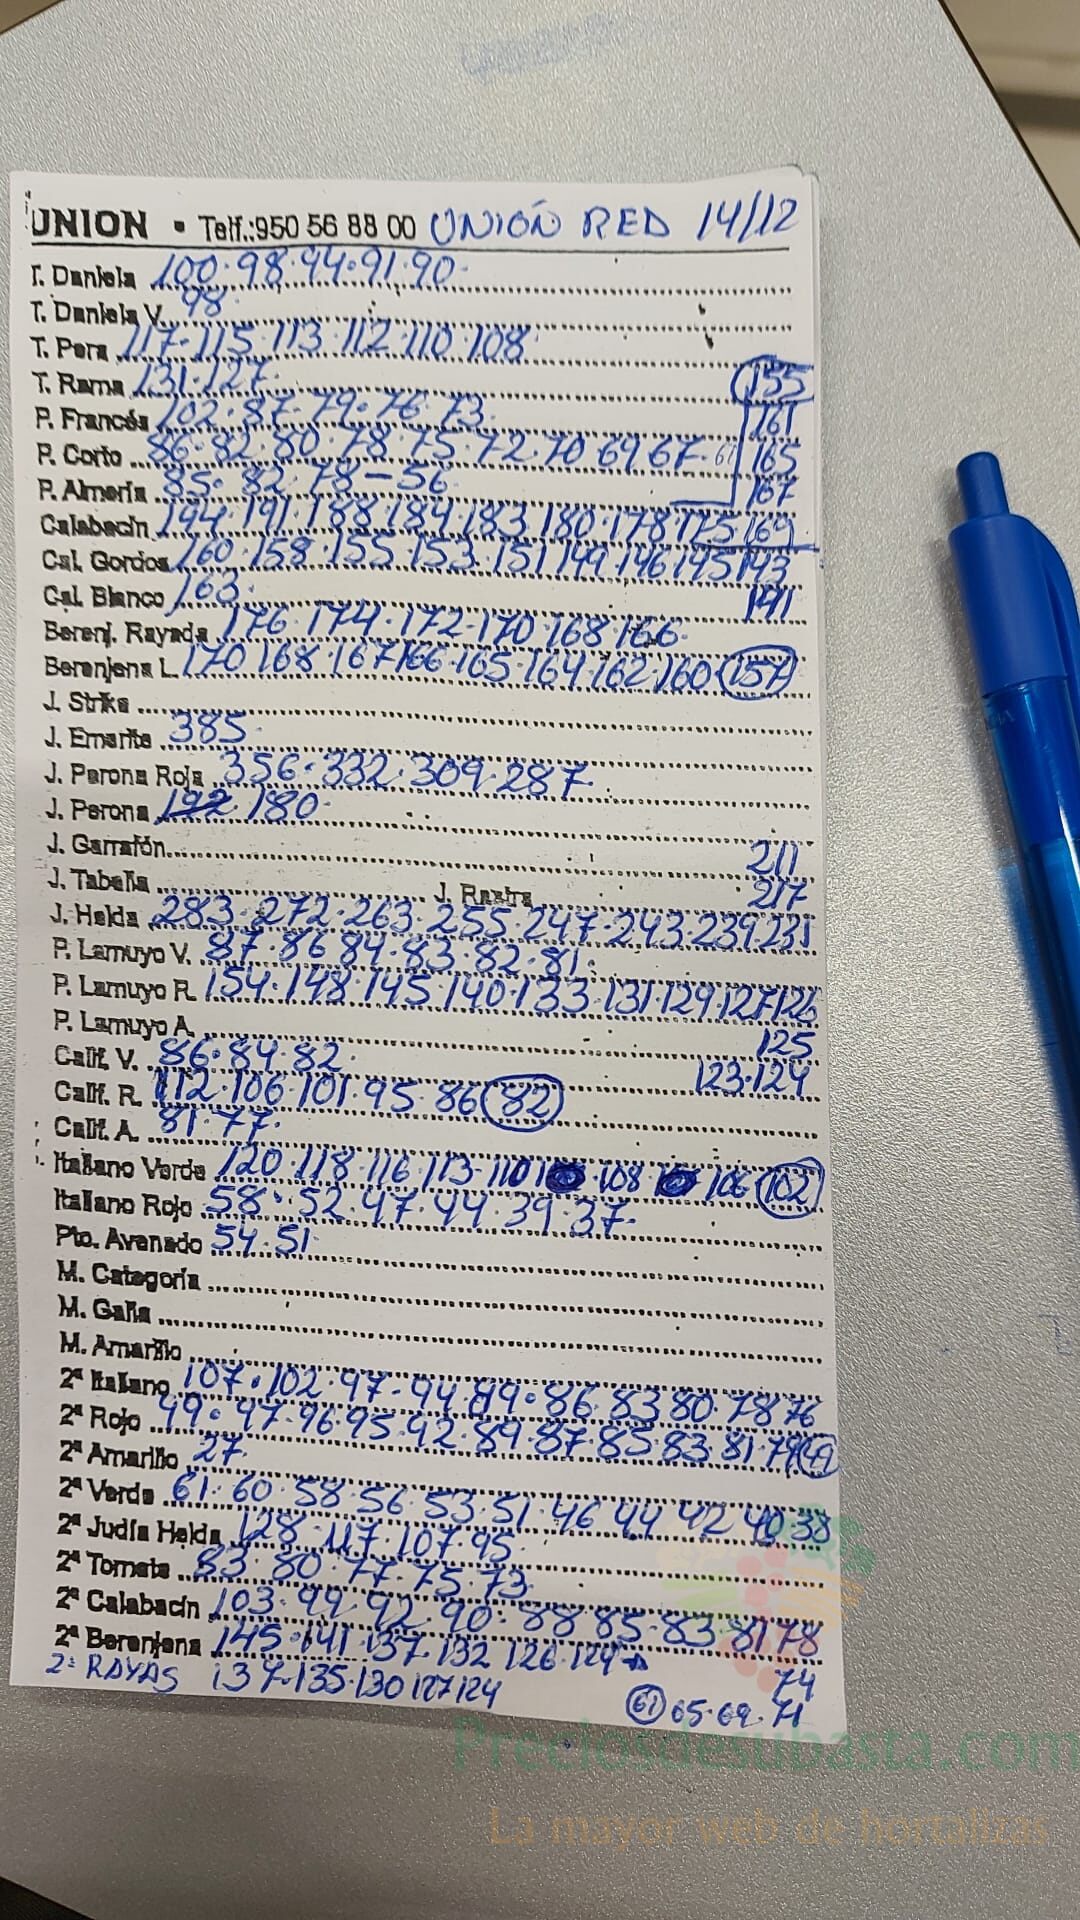 UNION • Telf.:950 56 88 00 UNIÓN RED 14/12
T. Daniela 100·98·94·91·90·
T. Daniela V. 98·
T. Pera 117·115·113·112·110·108·
T. Rama 131·127· 155
P. Francés 102·87·79·76·73· 161
P. Corto 86·82·80·78·75·72·70 69 67· 61 165
P. Almería 85·82·78-56 167
Calabacín 194·191·188·184·183·180·178·175 169
Cal. Gordos 160·158·155·153·151·149·146·145 143
Cal. Blanco 163· 141
Berenj. Rayada 176·174·172-170·168·166·
Berenjena L. 170·168·167 166·165·164·162·160 157
J. Strike
J. Emerite 385·
J. Perona Roja 356·332·309·287·
J. Perona 192 180·
J. Garrafón 211
J. Tabella J. Rastra 217
J. Helda 283·272·263·255·247·243·239·231
P. Lamuyo V. 87·86 84·83·82·81·
P. Lamuyo R. 154·148·145·140·133·131·129·127 126
P. Lamuyo A. 125
Calif. V. 86·84·82· 123·124
Calif. R. 112·106·101·95·86 82
Calif. A. 81·77·
Italiano Verde 120·118·116·113·110 ·108 106 102
Italiano Rojo 58·52·47·44·39·37·
Pto. Avenado 54·51·
M. Categoría
M. Galia
M. Amarillo
2ª Italiano 107·102·97·94·89·86·83 80·78 76
2ª Rojo 99·97·96·95·92·89·87·85·83·81·79 49
2ª Amarillo 27·
2ª Verde 61·60·58·56·53·51·46 44 42 40 38
2ª Judía Helda 128·117·107·95·
2ª Tomate 83·80·77·75·73·
2ª Calabacín 103·99·92·90·88 85·83 81 78
2ª Berenjena 145·141·137·132 126·124 74
2ª RAYAS 137·135·130 127 124 61 65·69·71
Preciosdesubasta.com
La mayor web de hortalizas